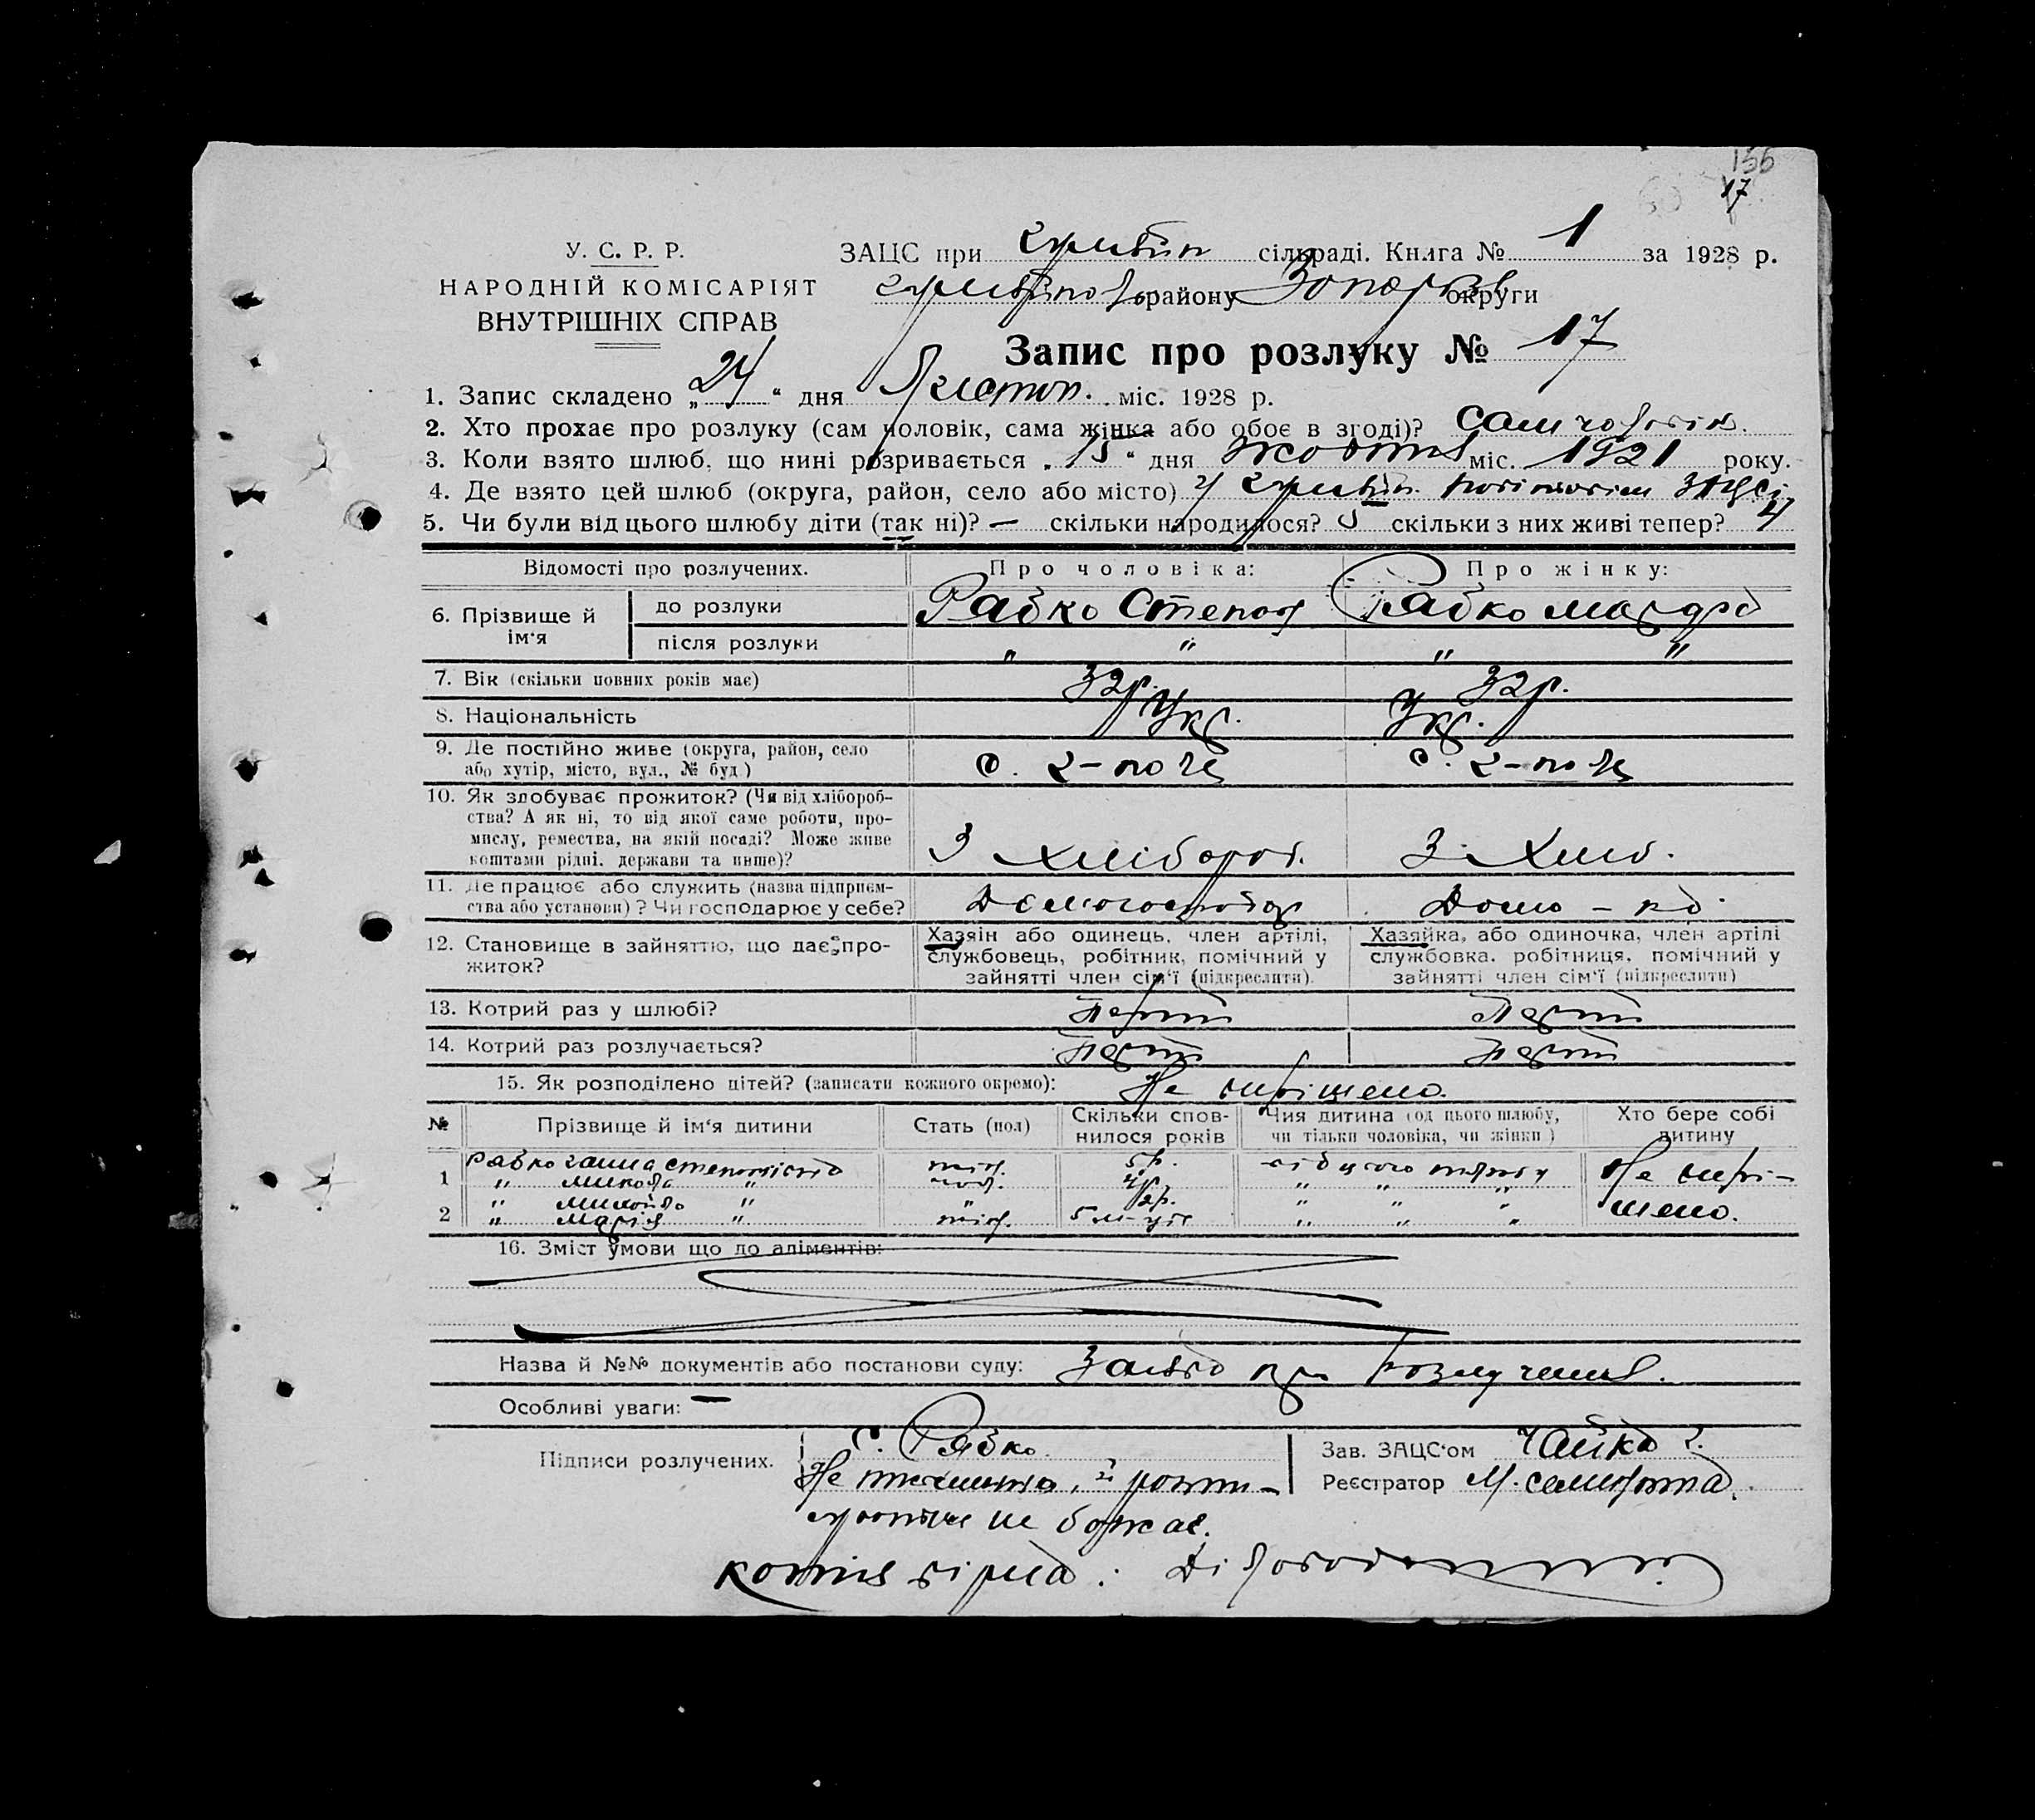 156
17
У. С. Р. Р.
НАРОДНІЙ КОМІСАРІЯТ
ВНУТРІШНІХ СПРАВ
ЗАЦС при сільраді. Книга № 1 за 1928 р.
району Запоріз округи
Запис про розлуку № 17
1. Запис складено „24“ дня Листоп. міс. 1928 р.
2. Хто прохає про розлуку (сам чоловік, сама жінка або обоє в згоді)? Сам чоловік.
3. Коли взято шлюб, що нині розривається „15“ дня Жовтня міс. 1921 року.
4. Де взято цей шлюб (округа, район, село або місто) у ЗАЦСі
5. Чи були від цього шлюбу діти (так ні)? — скільки народилося? 5 скільки з них живі тепер? 4
Відомості про розлучених. Про чоловіка: Про жінку:
6. Прізвище й ім'я до розлуки Рябко Степан Рябко
після розлуки „ „ „ „
7. Вік (скільки повних років має) 32р. 32р.
8. Національність Укр. Укр.
9. Де постійно живе (округа, район, село або хутір, місто, вул., № буд.) с. с.
10. Як здобуває прожиток? (Чи від хлібороб-
ства? А як ні, то від якої саме роботи, про-
мислу, ремества, на якій посаді? Може живе
коштами рідні, держави та инше)? З хлібороб. З Хліб.
11. Де працює або служить (назва підприєм-
ства або установи)? Чи господарює у себе? Домогосподар Домо-
12. Становище в зайняттю, що дає про-
житок?
Хазяін або одинець, член артілі,
службовець, робітник, помічний у
зайнятті член сім'ї (підкреслити).
Хазяйка, або одиночка, член артілі
службовка, робітниця, помічний у
зайнятті член сім'ї (підкреслити)
13. Котрий раз у шлюбі? Перший Перший
14. Котрий раз розлучається? Перший Перший
15. Як розподілено дітей? (записати кожного окремо): Не вирішено.
№ Прізвище й ім'я дитини Стать (пол) Скільки спов-
нилося років Чия дитина (од цього шлюбу,
чи тільки чоловіка, чи жінки) Хто бере собі
дитину
Рябко Ганна Степановна жін. 5р. від цього шлюбу Не вирі-
1 „ Микола „ чол. 4р. „ „ „ шено.
„ Михайло „ „ 2р. „ „ „
2 „ Марія „ жін. 5 м-ців „ „ „
16. Зміст умови що до аліментів:
Назва й №№ документів або постанови суду: Заява про розлучення.
Особливі уваги: —
Підписи розлучених. С. Рябко.
Не письменна, й розпи-
не бажає.
Зав. ЗАЦС'ом Чайка
Реєстратор М.
Копія вірна: